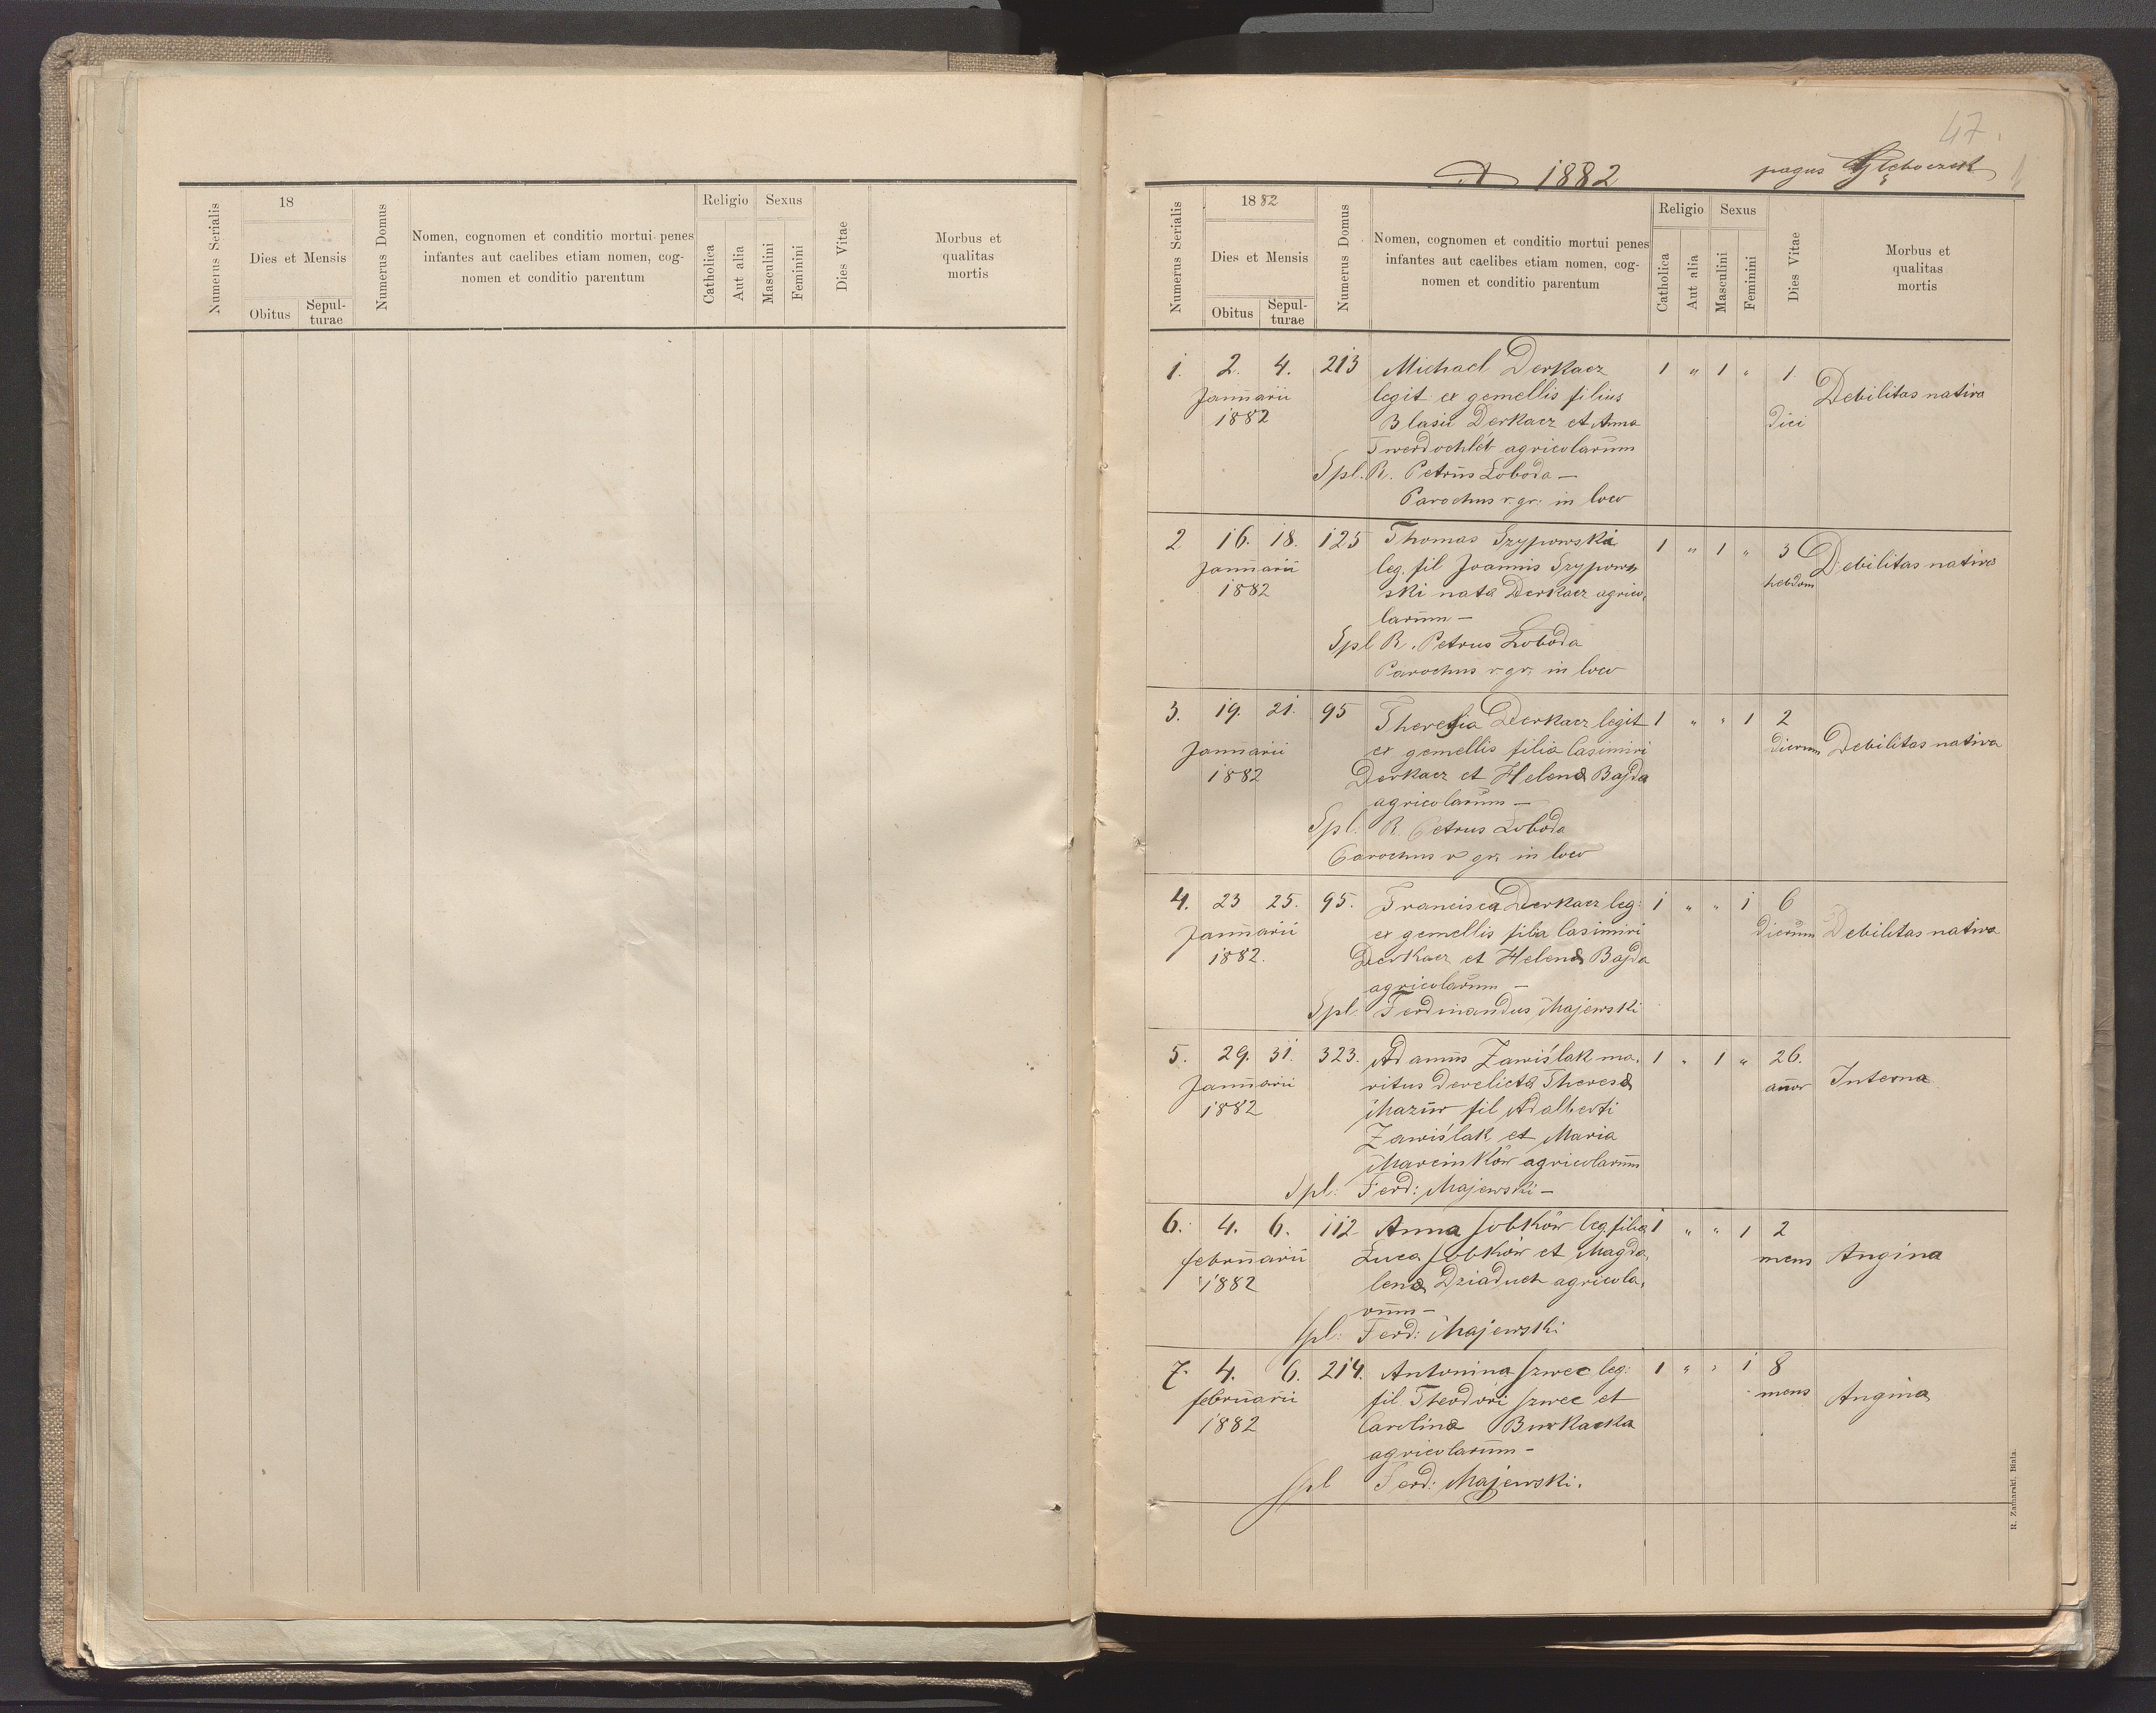 18
Numerus Serialis
Dies et Mensis
Obitus
Sepul-
turae
Numerus Domus
Nomen, cognomen et conditio mortui penes
infantes aut caelibes etiam nomen, cog-
nomen et conditio parentum
Religio
Catholica
Aut alia
Sexus
Masculini
Feminini
Dies Vitae
Morbus et
qualitas
mortis
47.
A 1882
pagus Głęboczek
1882
Numerus Serialis
Dies et Mensis
Obitus
Sepul-
turae
Numerus Domus
Nomen, cognomen et conditio mortui penes
infantes aut caelibes etiam nomen, cog-
nomen et conditio parentum
Religio
Catholica
Aut alia
Sexus
Masculini
Feminini
Dies Vitae
Morbus et
qualitas
mortis
1. 2. 4. 213 Michael Derkacz 1 " 1 " 1.
Januarii legit ex gemellis filius Debilitas nativa
1882 Blasii Derkacz et Anna diei
Twerdochlеb agricolarum
Spl. R. Petrus Łoboda —
Parochus r. gr. in loco
2 16. 18. 125 Thomas Szypowski 1 " 1 " 3 Debilitas nativa
Januarii leg. fil Joannis Szypow hebdom
1882 ski nata Derkacz agrico,
larum —
Spl R. Petrus Łoboda
Parochus r. gr. in loco
3. 19. 21. 95 Theresia Derkacz legit 1 " " 1 2
Januarii ex gemellis filia Casimiri dierum Debilitas nativa
1882 Derkacz et Helena Bajda
agricolarum —
Spl. R. Petrus Łoboda
Parochus r gr. in loco
4. 23 25. 95. Francisca Derkacz leg: 1 " " 1 6
Januarii ex gemellis filia Casimiri dierum Debilitas nativa
1882. Derkacz et Helena Bajda
agricolarum —
Spl. Ferdinandus Majewski
5. 29. 31. 323. Adamus Zawiślak ma, 1 " 1 " 26.
Januarii ritus derelicta Theresa annor Interna
1882 Mazur fil Adalberti
Zawiślak et Maria
Marcinków agricolarum
Spl: Ferd: Majewski —
6. 4. 6. 112 Anna Sobków leg. filia 1 " " 1 2
februarii Luca Sobków et Magda, mens Angina
1882 lena Dziaduch agricola,
rum —
Spl: Ferd: Majewski
7. 4. 6. 214. Antonina Szwec leg: 1 " " 1 8
februarii fil Theodori Szwec et mens Angina
1882 Carolina Burkacka
agricolarum —
Spl Ferd: Majewski.
R. Zamarski, Biała.